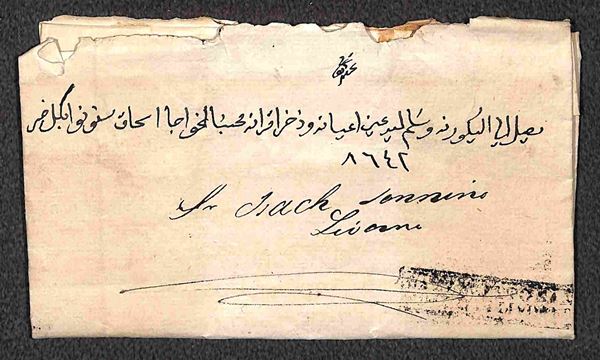 يصل الى اليكورنه وسلم ليد عين اعيانه وذخر اقرانه محبنا الخواجا اسحاق سونينو بكل خير
٨٦٤٢
Sr Isach Sonnino
Livorno